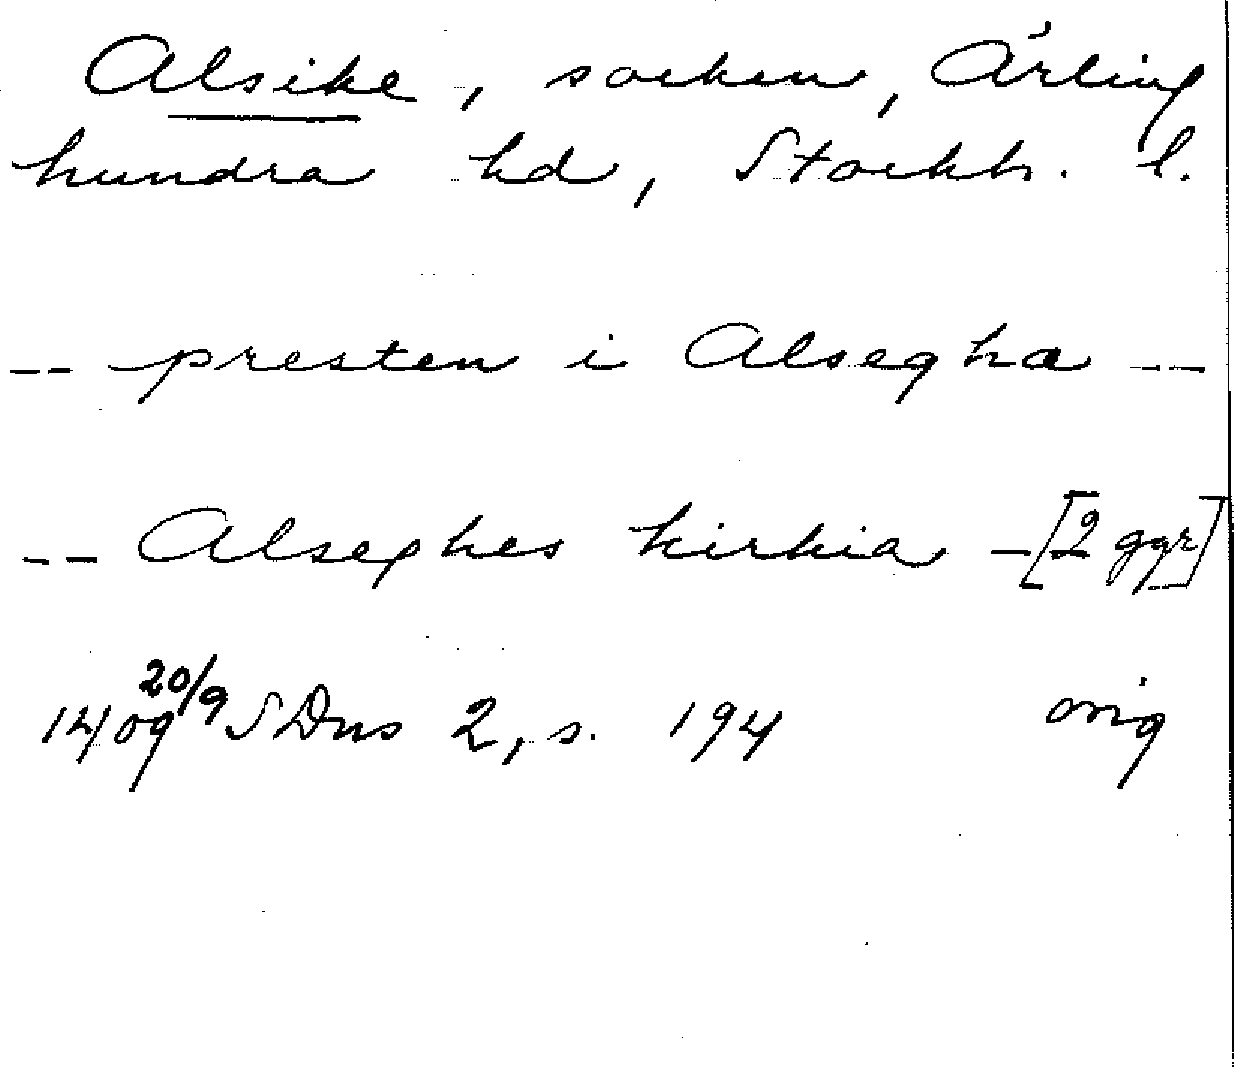 Alsike, socken, Ärling
hundra hd, Stockh. l.
-- presten i Alsegha --
-- Alseghes kirkia - [2 ggr]
1409 20/9 SDns 2, s. 194 orig